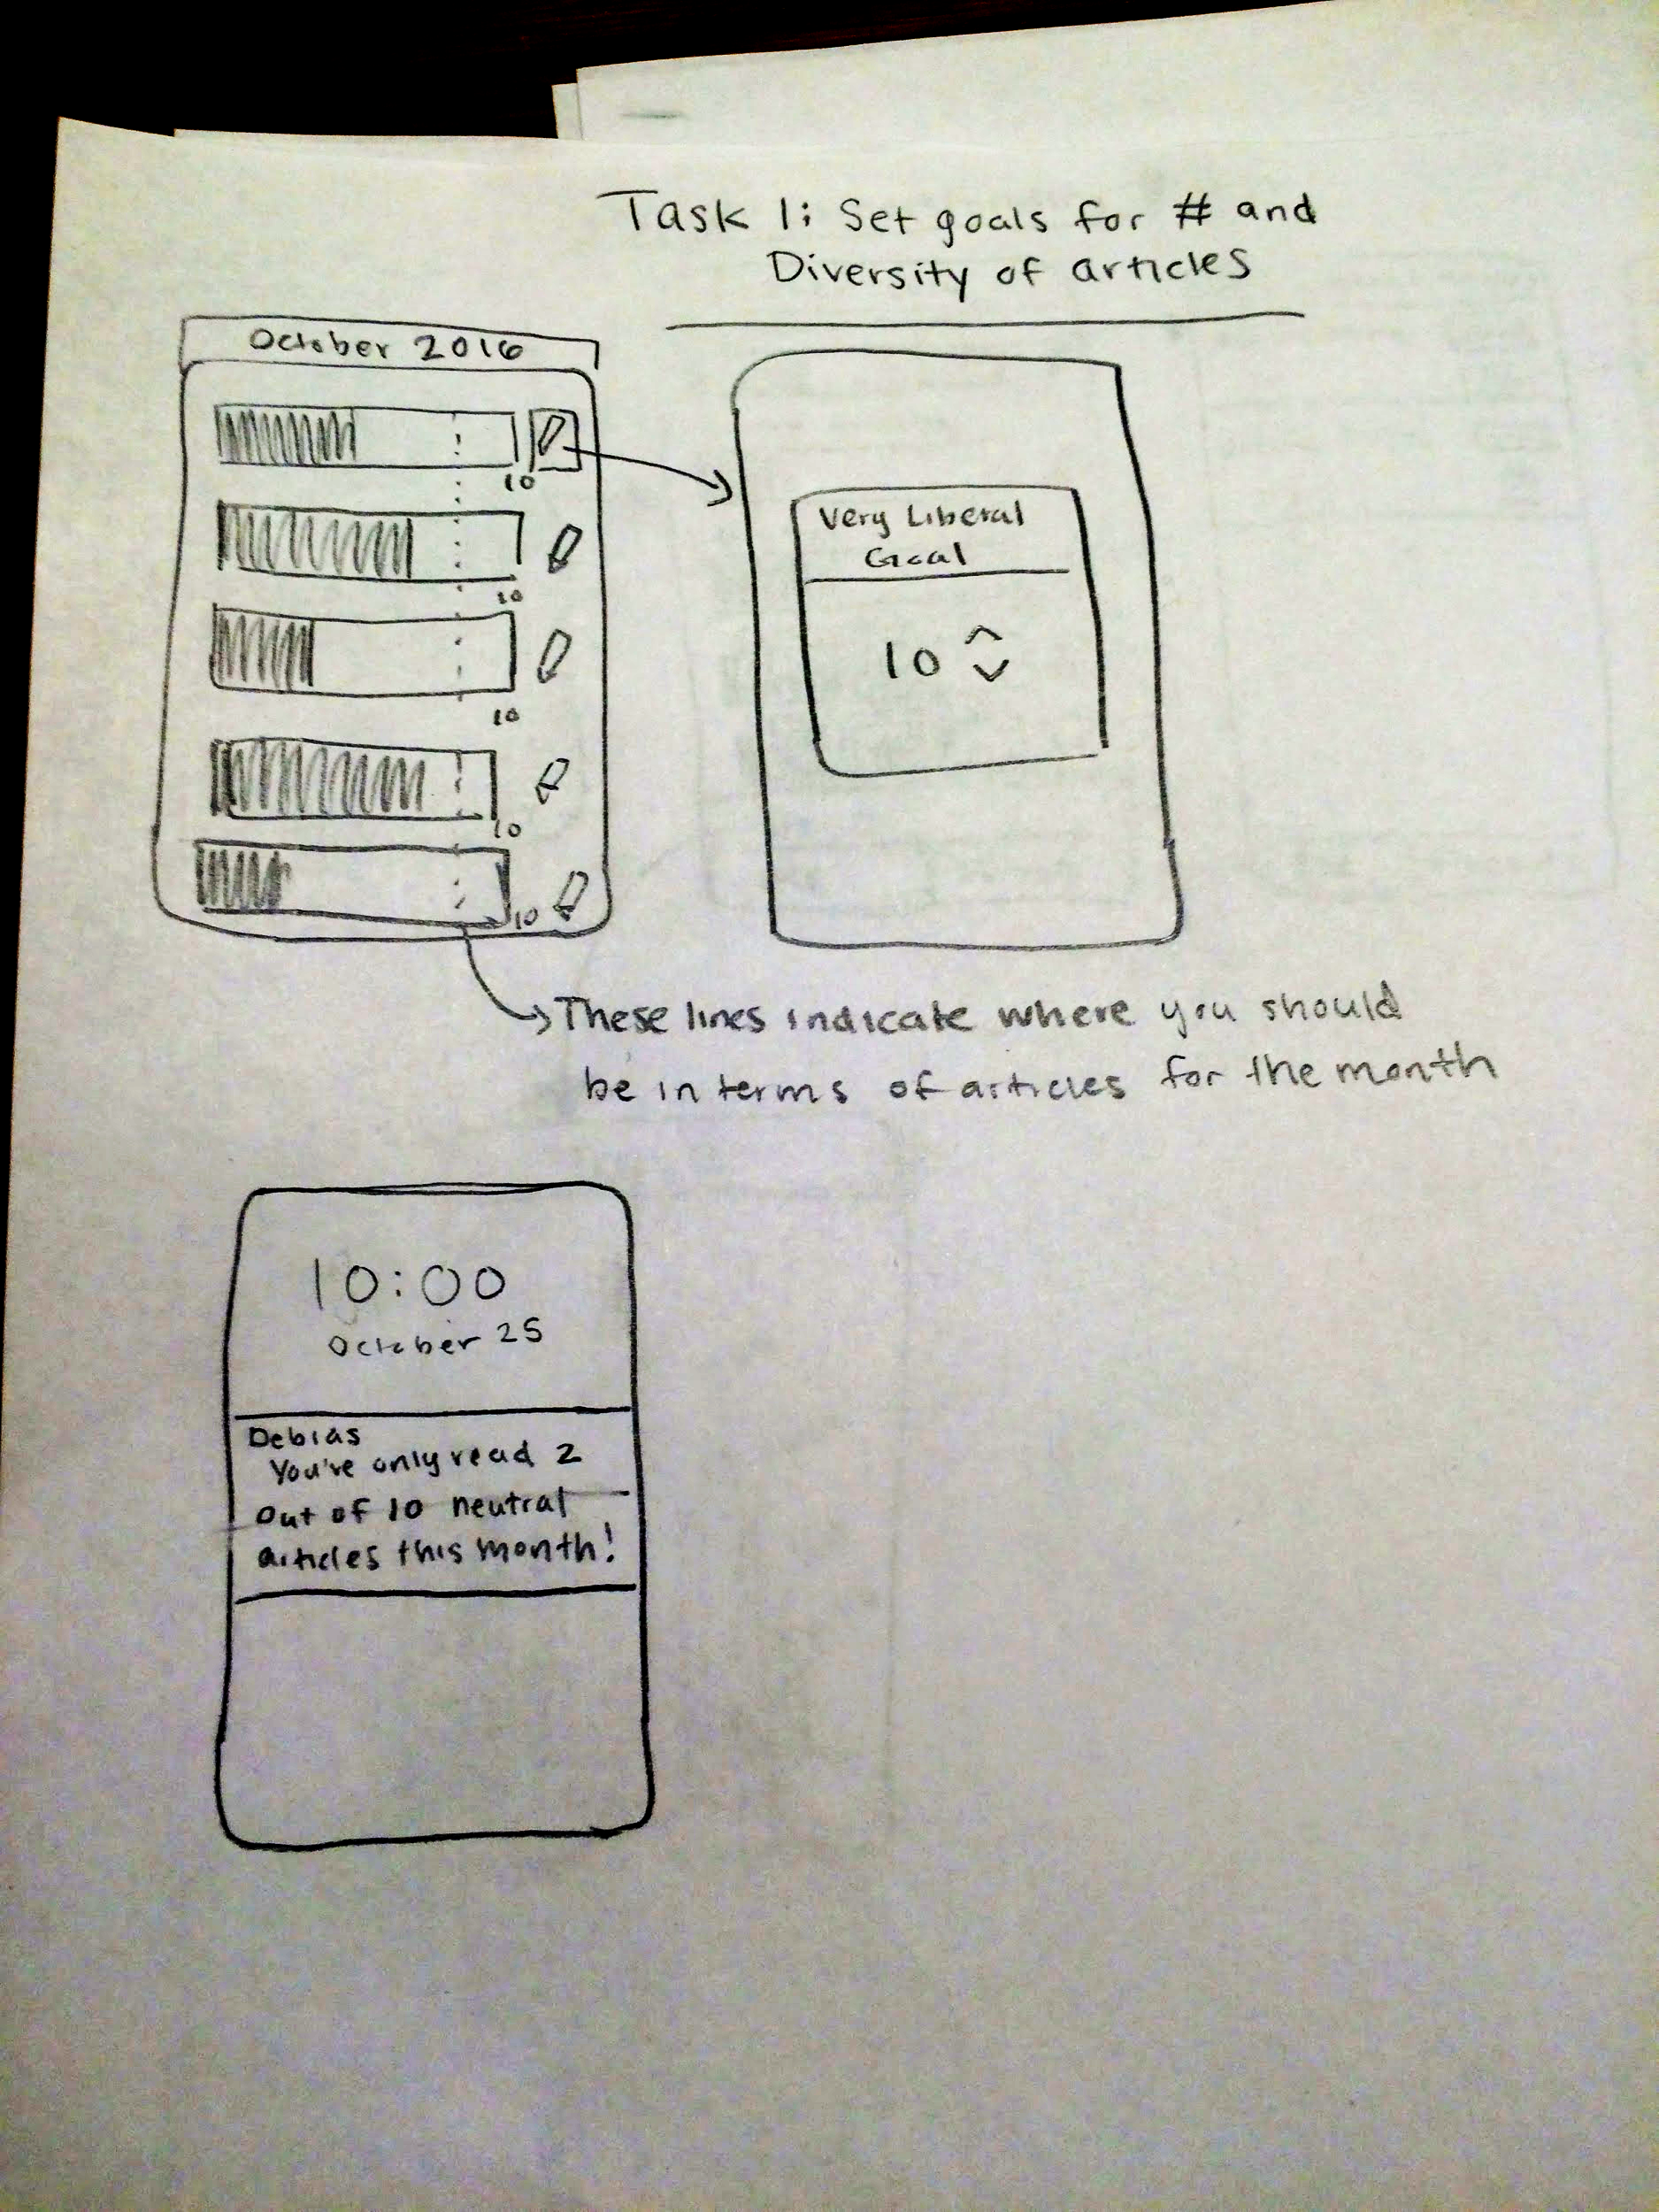 Task 1: Set goals for # and
Diversity of articles
October 2016
10
10
10
10
10
Very Liberal
Goal
10
These lines indicate where you should
be in terms of articles for the month
10:00
October 25
Debias
You've only read 2
out of 10 neutral
articles this month!